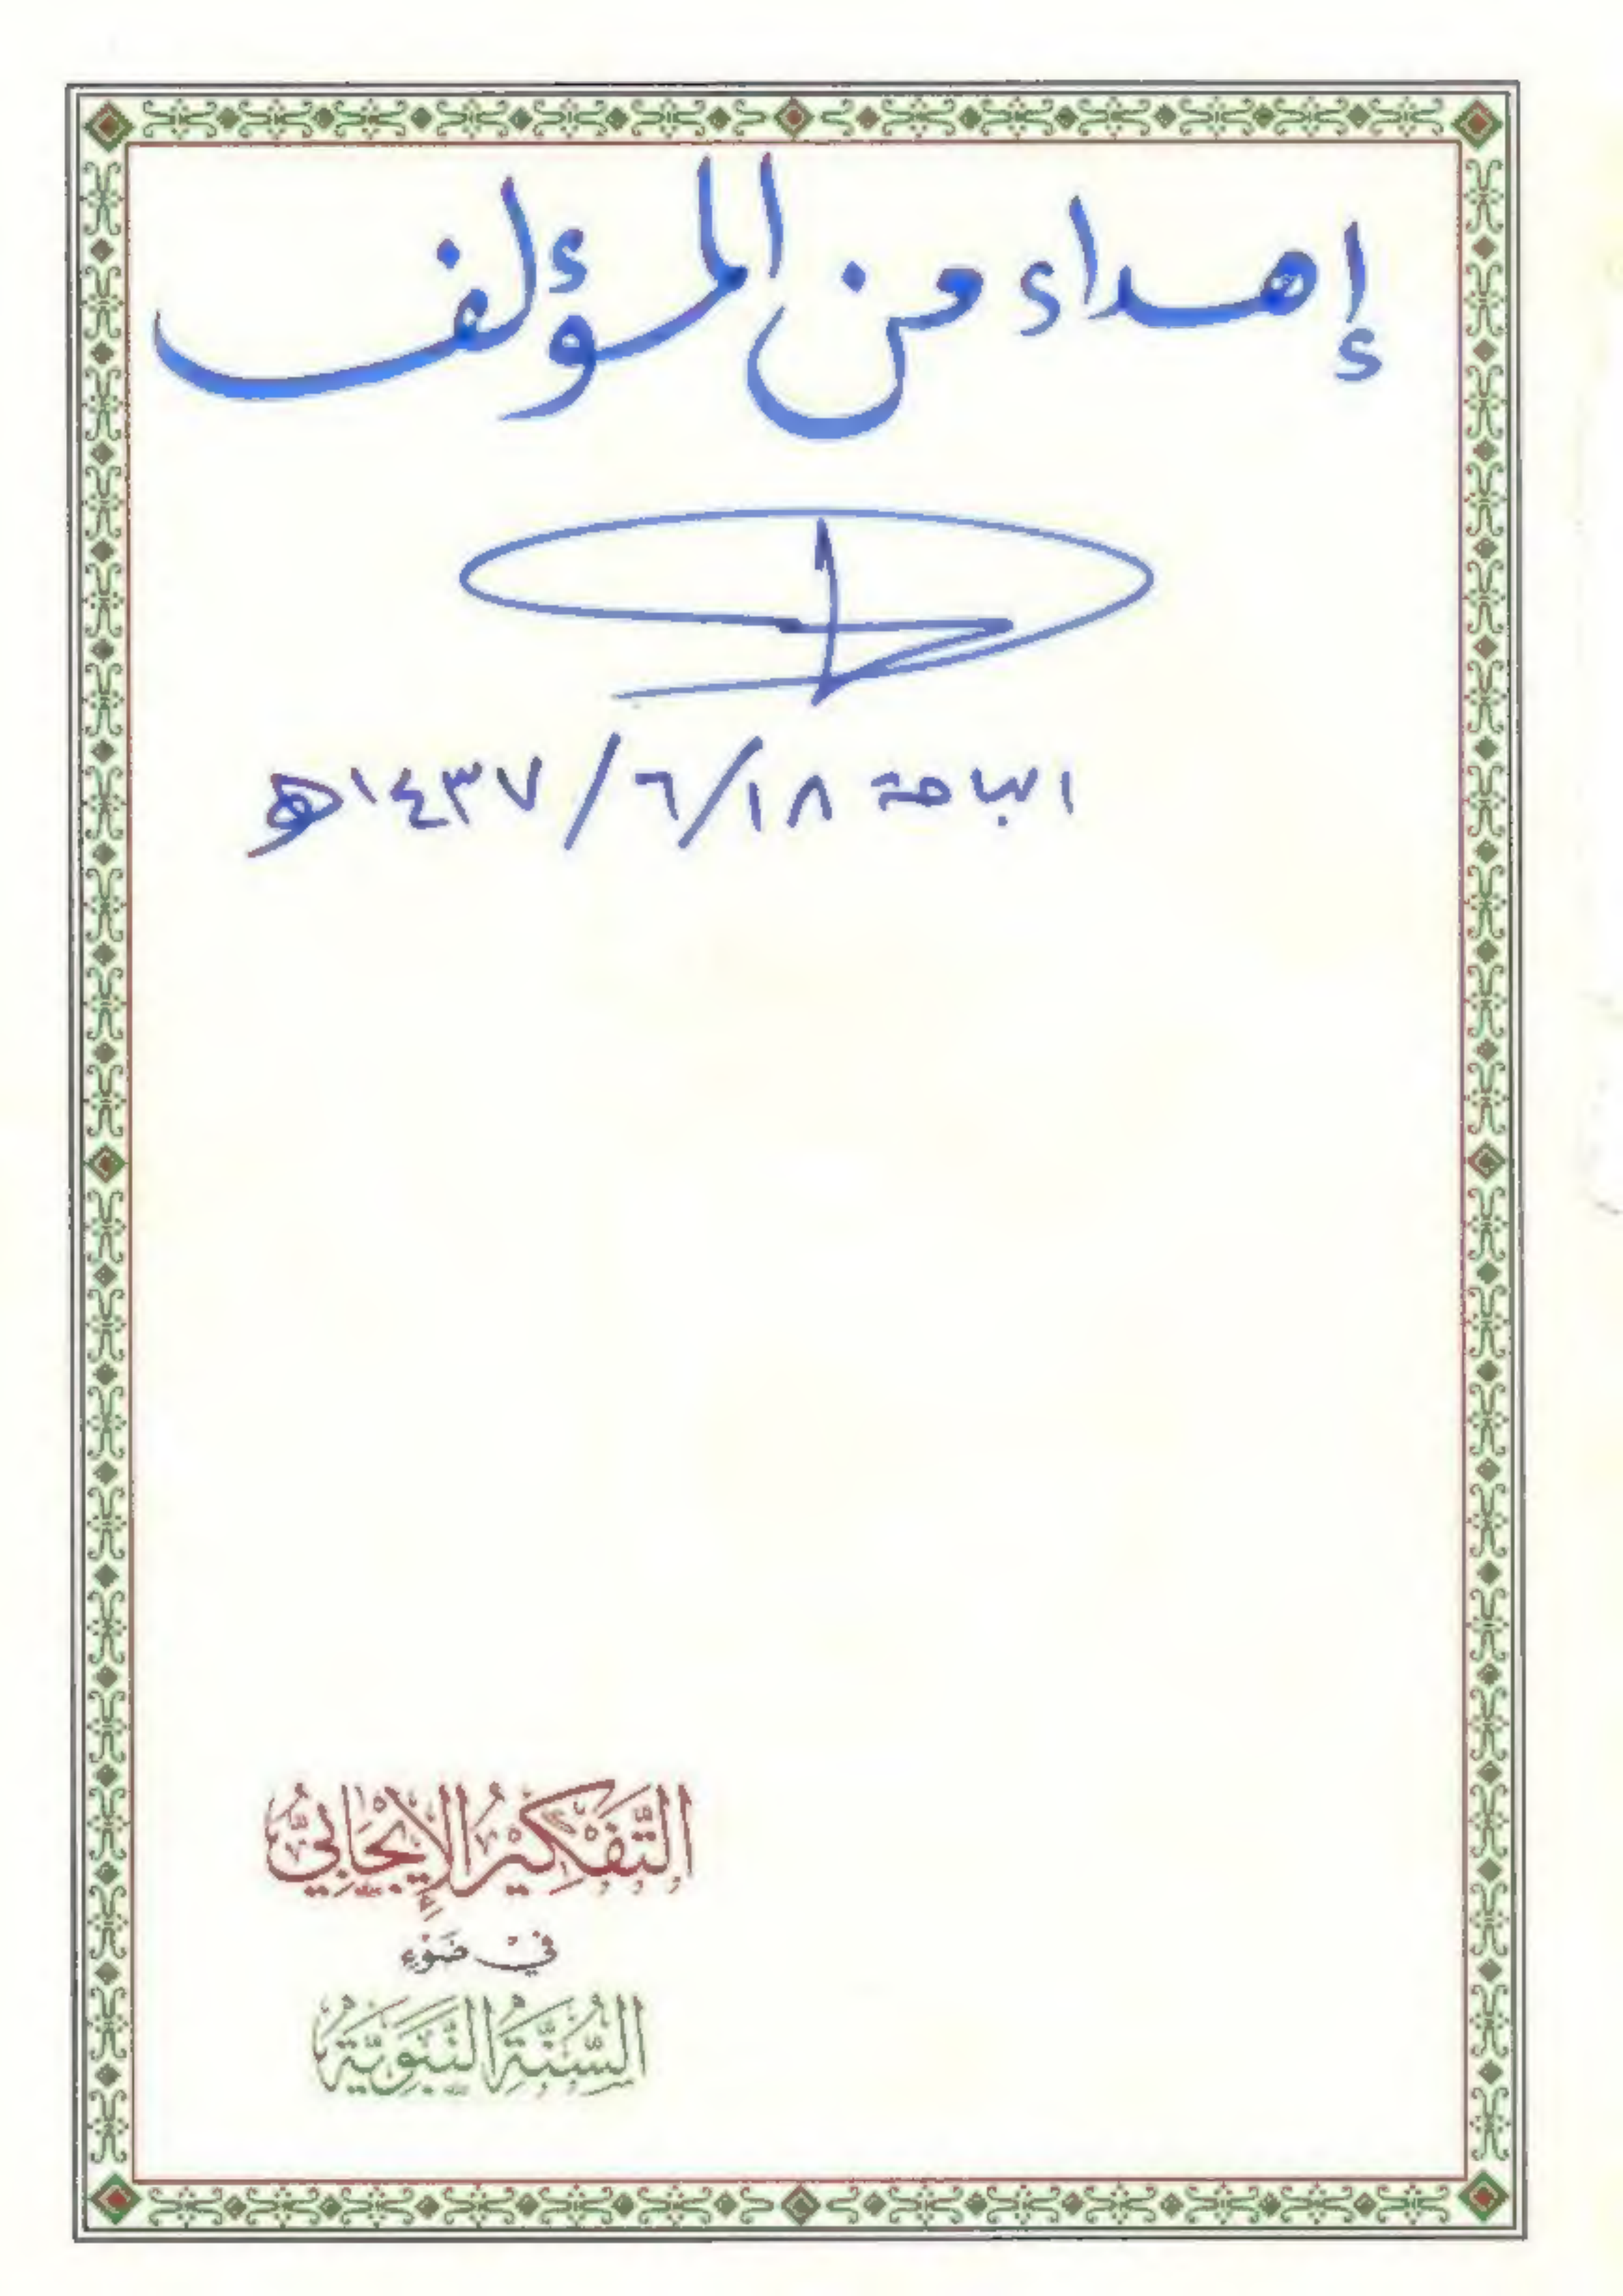 إهداء من المؤلف
الباحة ١٨/٦/١٤٣٧هـ
التَّفْكِيْرُ الإِيْجَابِيُّ
فِيْ ضَوْءِ
السُّنَّةِ النَّبَوِيَّةِ